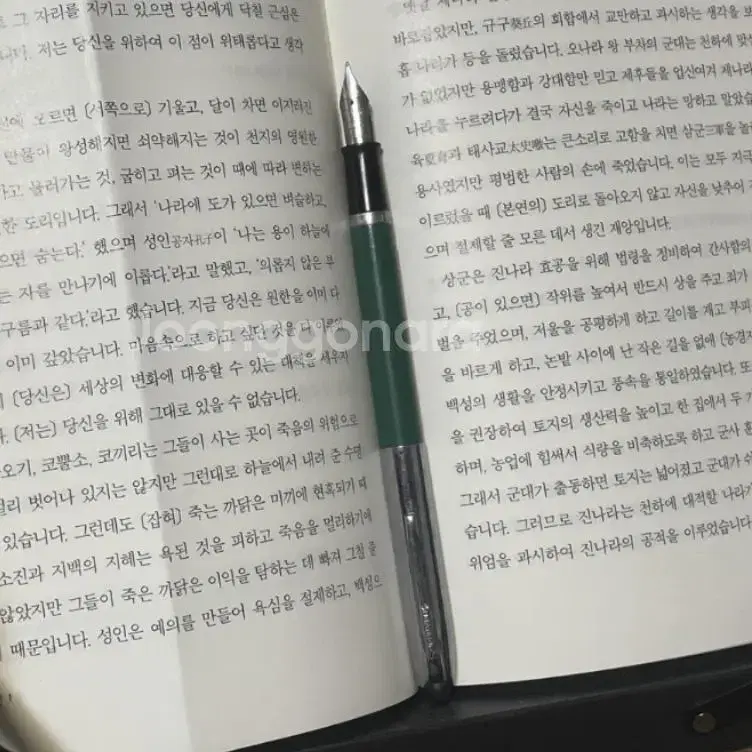 그 자리를 지키고 있으면 당신에게 닥칠 근심은
저는 당신을 위하여 이 점이 위태롭다고 생각
오르면 (서쪽으로) 기울고, 달이 차면 이지러진
만물이 왕성해지면 쇠약해지는 것이 천지의 영원한
물러가는 것, 굽히고 펴는 것이 때에 따라 변하는
한 도리입니다. 그래서 '나라에 도가 있으면 벼슬하고,
으면 숨는다.' 했으며 성인공자孔子이 '나는 용이 하늘에
는 자를 만나기에 이롭다.'라고 말했고, '의롭지 않은 부
구름과 같다.'라고 했습니다. 지금 당신은 원한을 이미 다
이미 갚았습니다. 마음속으로 하고 싶던 것을 다
(당신은) 세상의 변화에 대응할 수 있는 대책을 세우지
(저는) 당신을 위해 그대로 있을 수 없습니다.
오기, 코뿔소, 코끼리는 그들이 사는 곳이 죽음의 위험으로
멀리 벗어나 있지는 않지만 그런대로 하늘에서 내려 준 수명
있습니다. 그런데도 (잡혀) 죽는 까닭은 미끼에 현혹되기 때
소진과 지백의 지혜는 욕된 것을 피하고 죽음을 멀리하기에
않았지만 그들이 죽은 까닭은 이익을 탐하는 데 빠져 그칠 줄
때문입니다. 성인은 예의를 만들어 욕심을 절제하고, 백성으
바로잡았지만, 규구葵丘의 회합에서 교만하고 과시하는 생각을
나라가 등을 돌렸습니다. 오나라 왕 부차의 군대는 천하에 맞설
가 없었지만 용맹함과 강대함만 믿고 제후들을 업신여겨 제나라
나라를 누르려다가 결국 자신을 죽이고 나라는 망하고 말았습
태사교太史噭는 큰소리로 고함을 치면 삼군三軍을 놀라
용사였지만 평범한 사람의 손에 죽었습니다. 이는 모두 지극
이르렀을 때 (본연의) 도리로 돌아오지 않고 자신을 낮추어
으며 절제할 줄 모른 데서 생긴 재앙입니다.
상군은 진나라 효공을 위해 법령을 정비하여 간사함의
고, (공이 있으면) 작위를 높여서 반드시 상을 주고 죄가
벌을 주었으며, 저울을 공평하게 하고 길이를 재고 부피
을 바르게 하고, 논밭 사이에 난 작은 길을 없애 (농경지
백성의 생활을 안정시키고 풍속을 통일하였습니다. 또
을 권장하여 토지의 생산력을 높이고 한 집에서 두 가
하며, 농업에 힘써서 식량을 비축하도록 하고 군사 훈
그래서 군대가 출동하면 토지는 넓어졌고 군대가 쉬
습니다. 그러므로 진나라는 천하에 대적할 나라가
위엄을 과시하여 진나라의 공적을 이루었습니다.
joonggonara